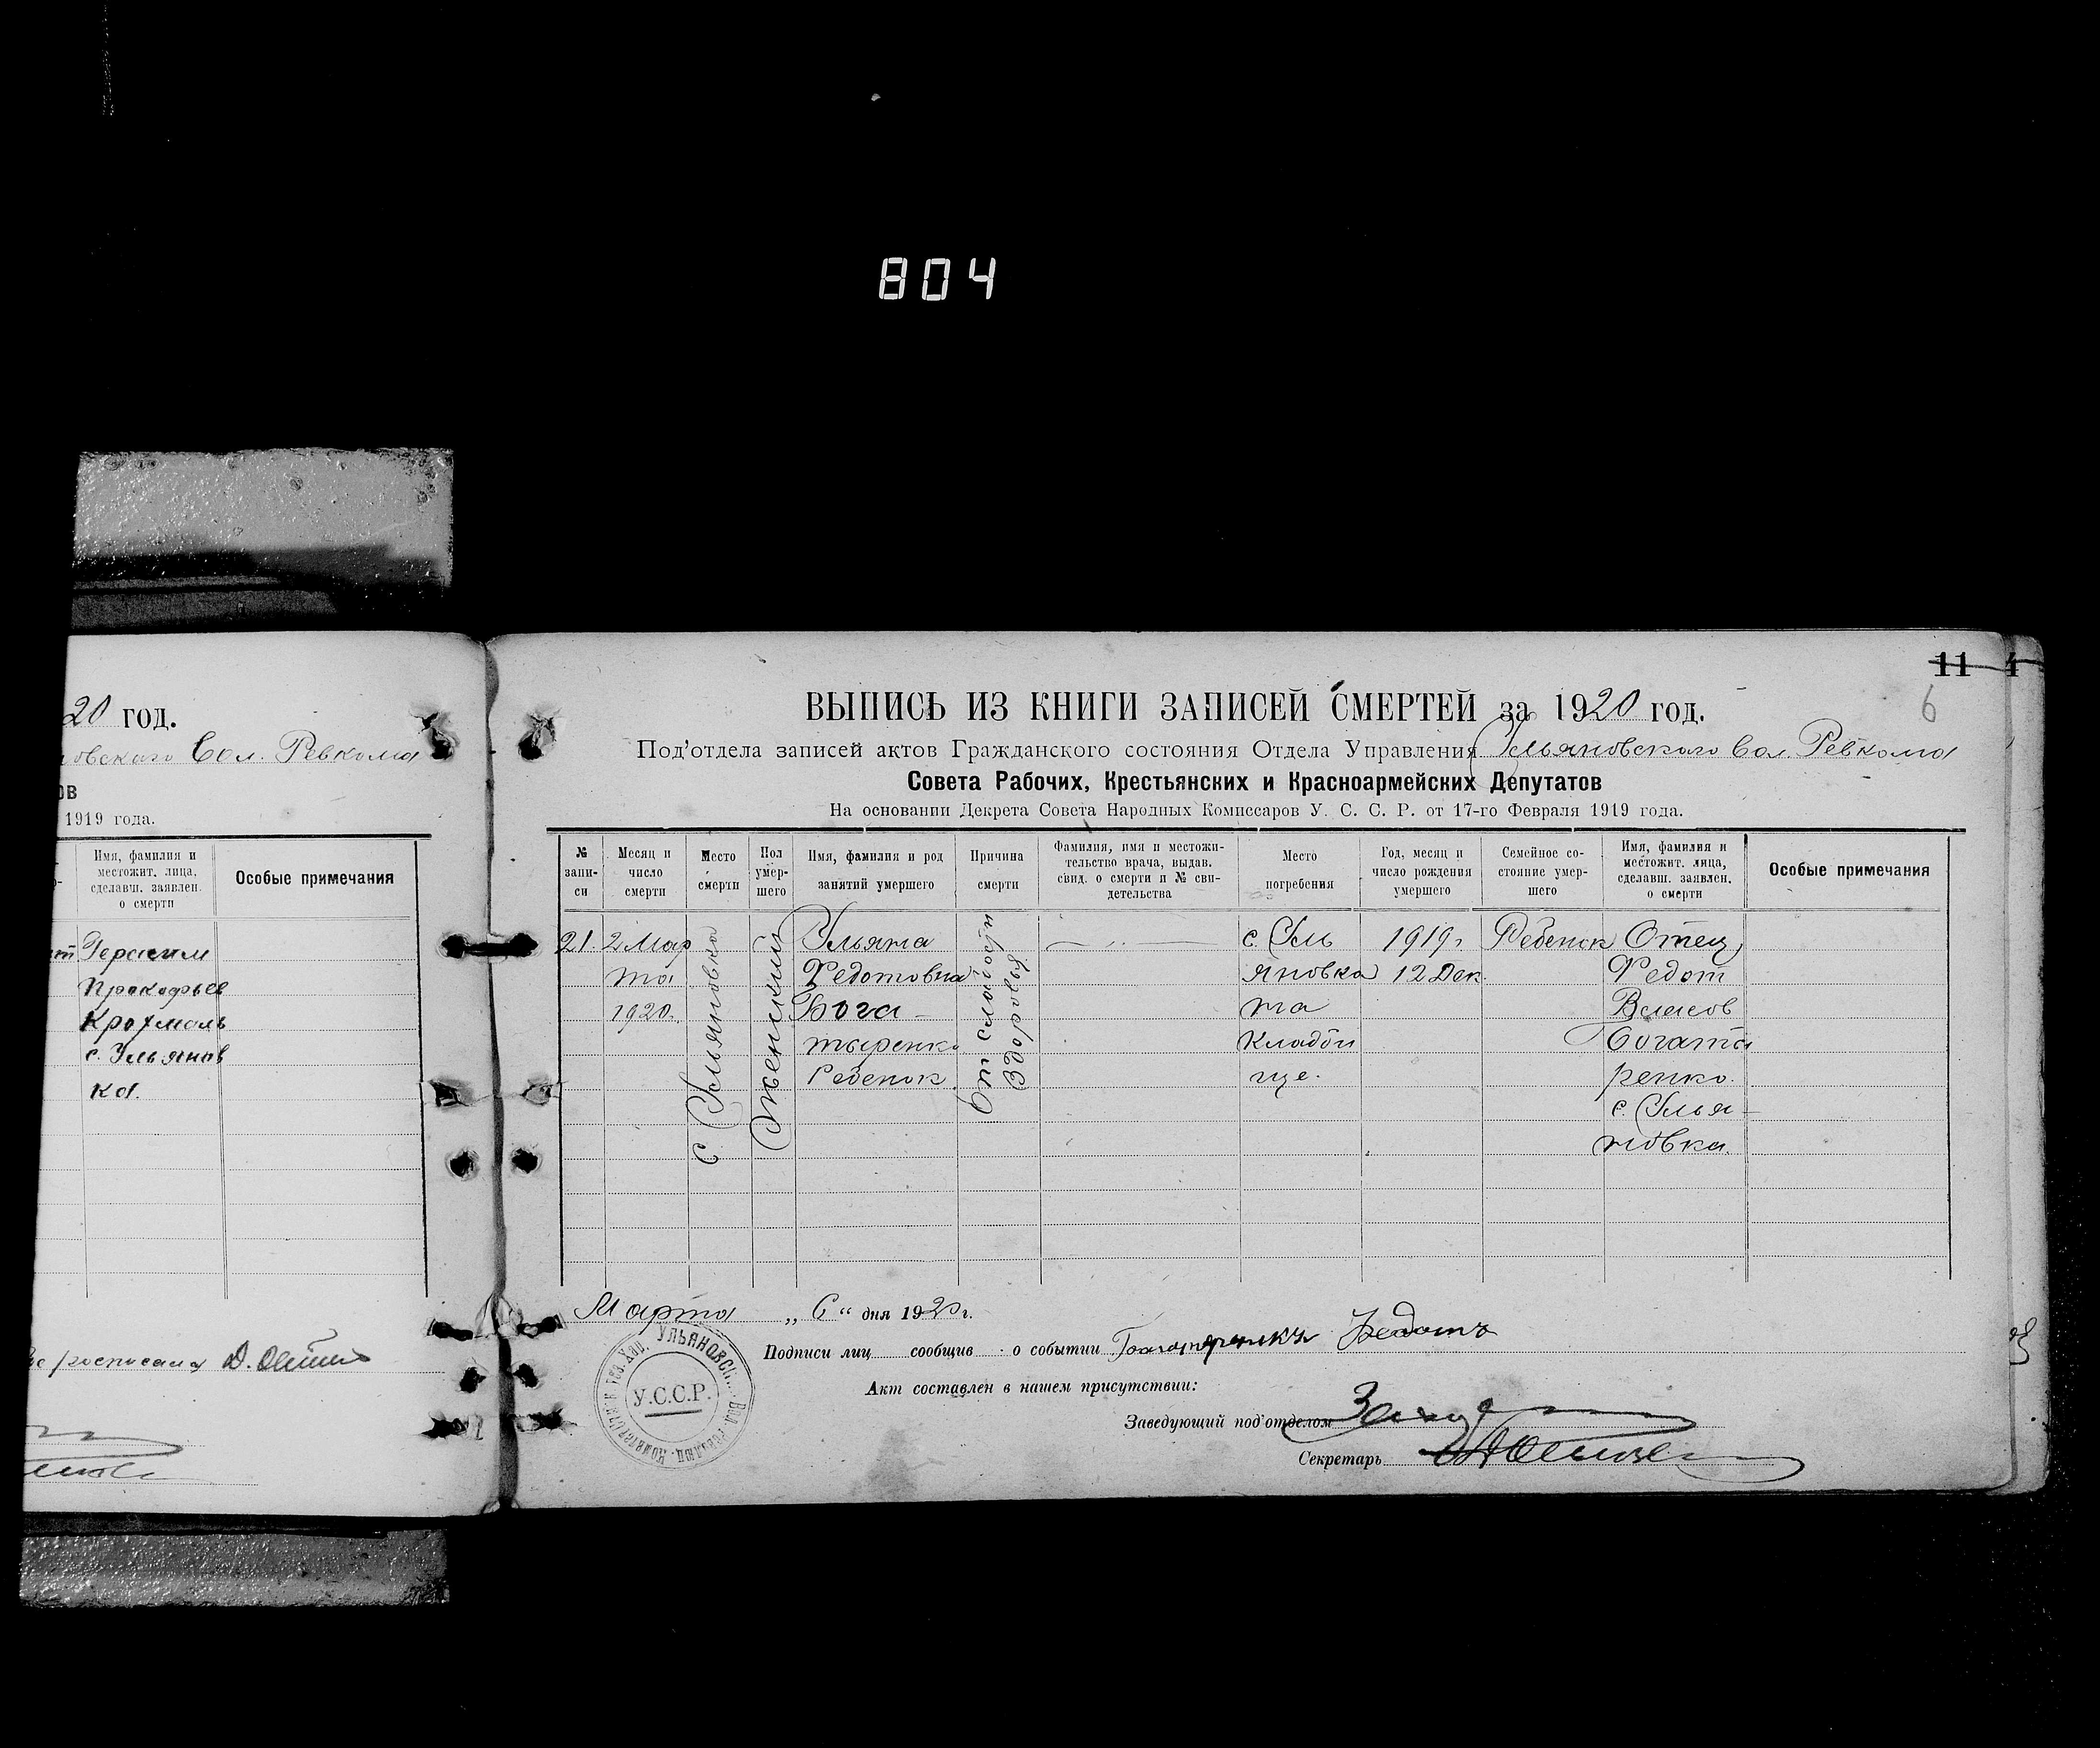 804
20 год.
овского Вол. Ревкома
ов
1919 года.
Имя, фамилия и
местожит. лица,
сделавш. заявлен.
о смерти
Особые примечания
Герасим
Прокофьев
Крохмаль
с. Ульянов
ка.
росписался
11 4
6
ВЫПИСЬ ИЗ КНИГИ ЗАПИСЕЙ СМЕРТЕЙ за 1920 год.
Под'отдела записей актов Гражданского состояния Отдела Управления Ульяновского Вол. Ревкома
Совета Рабочих, Крестьянских и Красноармейских Депутатов
На основании Декрета Совета Народных Комиссаров У. С. С. Р. от 17-го Февраля 1919 года.
№
запи-
си
Месяц и
число
смерти
Место
смерти
Пол
умер-
шего
Имя, фамилия и род
занятий умершего
Причина
смерти
Фамилия, имя и местожи-
тельство врача, выдав.
свид. о смерти и № сви-
детельства
Место
погребения
Год, месяц и
число рождения
умершего
Семейное со-
стояние умер-
шего
Имя, фамилия и
местожит. лица,
сделавш. заявлен.
о смерти
Особые примечания
21.
2 Мар
та
1920.
с. Ульяновка
Женский
Ульяна
Федотовна
Бога-
тыренко
Ребенок
От слабости
здоровья
— „ —
с. Уль
яновка
на
кладби
ще.
1919 г.
12 Дек.
Ребенок
Отец
Федот
Власов
Богаты
ренко.
с. Улья-
новка.
Марта „ 6 “ дня 1920 г.
Подписи лиц сообщив о событии Богатыренко Федотъ
Акт составлен в нашем присутствии:
Заведующий под'отделом
Секретарь
У.С.С.Р.